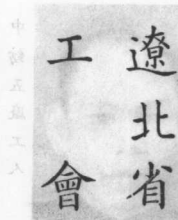 遼北省
工會